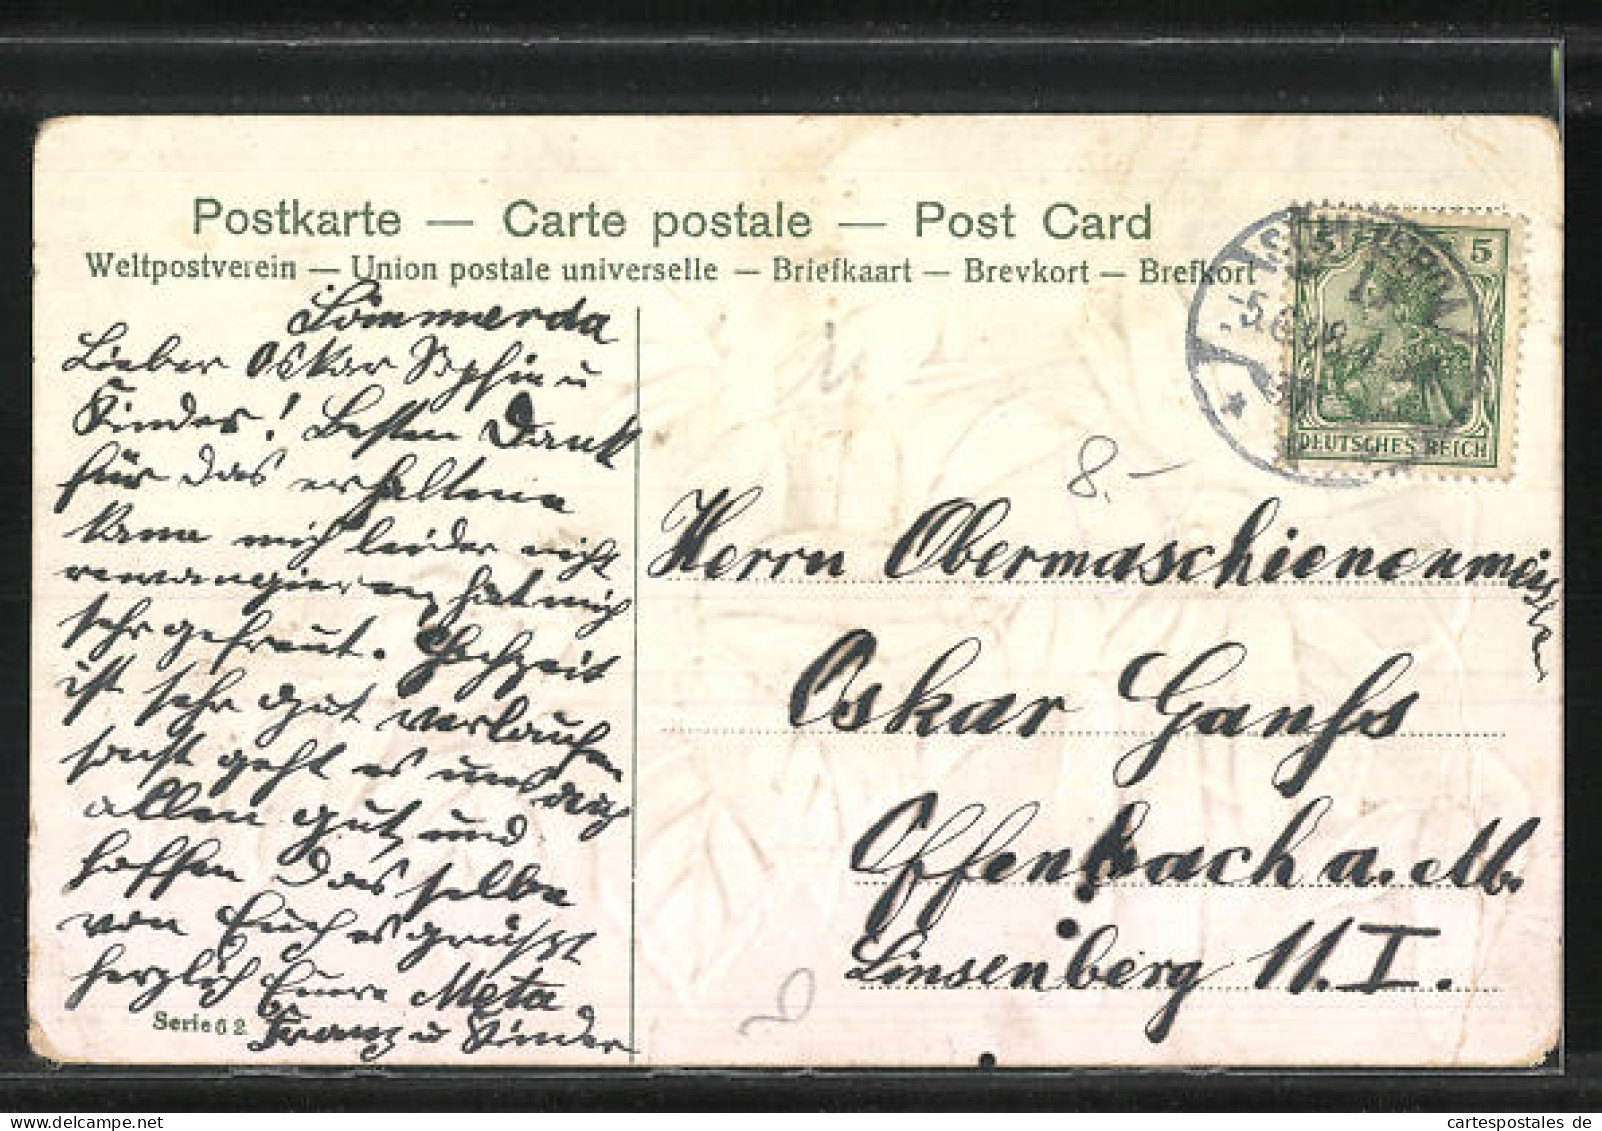 Postkarte — Carte postale — Post Card
Weltpostverein — Union postale universelle — Briefkaart — Brevkort — Brefkort
Sömmerda
Lieber Oskar Sophie u
Kinder! Besten Dank
für das erhaltene
kann mich leider nicht
revangieren hat mich
sehr gefreut. Hochzeit
ist sehr gut verlaufen
sonst geht es uns auch
allen gut und
hoffen das selbe
von Euch es grüßt
herzlich Eure Meta
Franz u Kinder
Serie 62
5
DEUTSCHES REICH
8.-
Herrn Obermaschienenmeister
Oskar Ganhs
Offenbach a. M.
Linsenberg 11. I.
cartespostales de